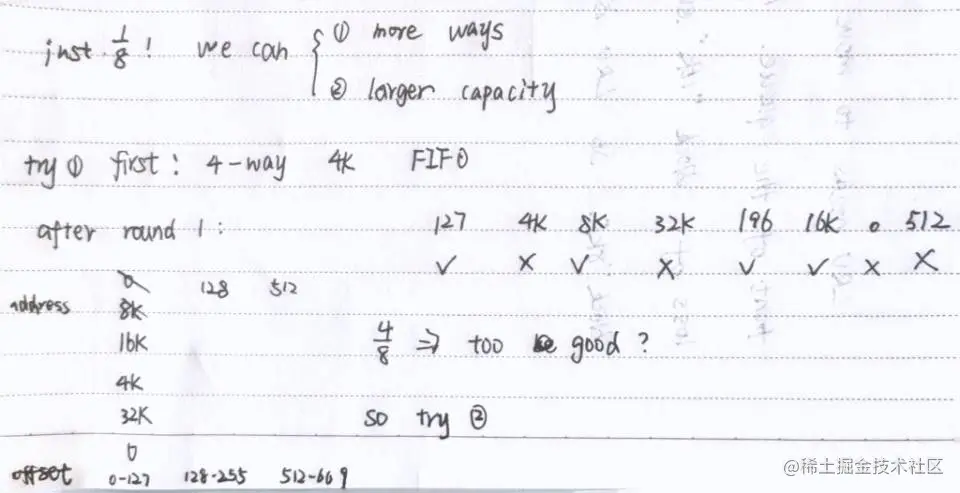 inst. 1/8 ! we can { ① more ways
② larger capacity
try ① first : 4-way 4K FIFO
after round 1 : 127 4K 8K 32K 196 16K 0 512
✓ ✗ ✓ ✗ ✓ ✓ ✗ ✗
address 0 128 512
8K
16K 4/8 ⇒ too good ?
4K
32K so try ②
0
offset 0-127 128-255 512-669
@稀土掘金技术社区